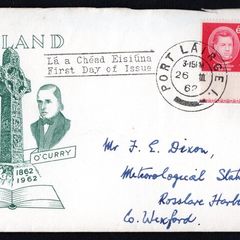 LAND
Lá a Chéad Eisiúna
First Day of Issue
PORT LÁIRGE
3-15PM
26 III
62
O'CURRY
1862
1962
Mr F. E. Dixon,
Meteorological Stat
Rosslare Harb
Co. Wexford.